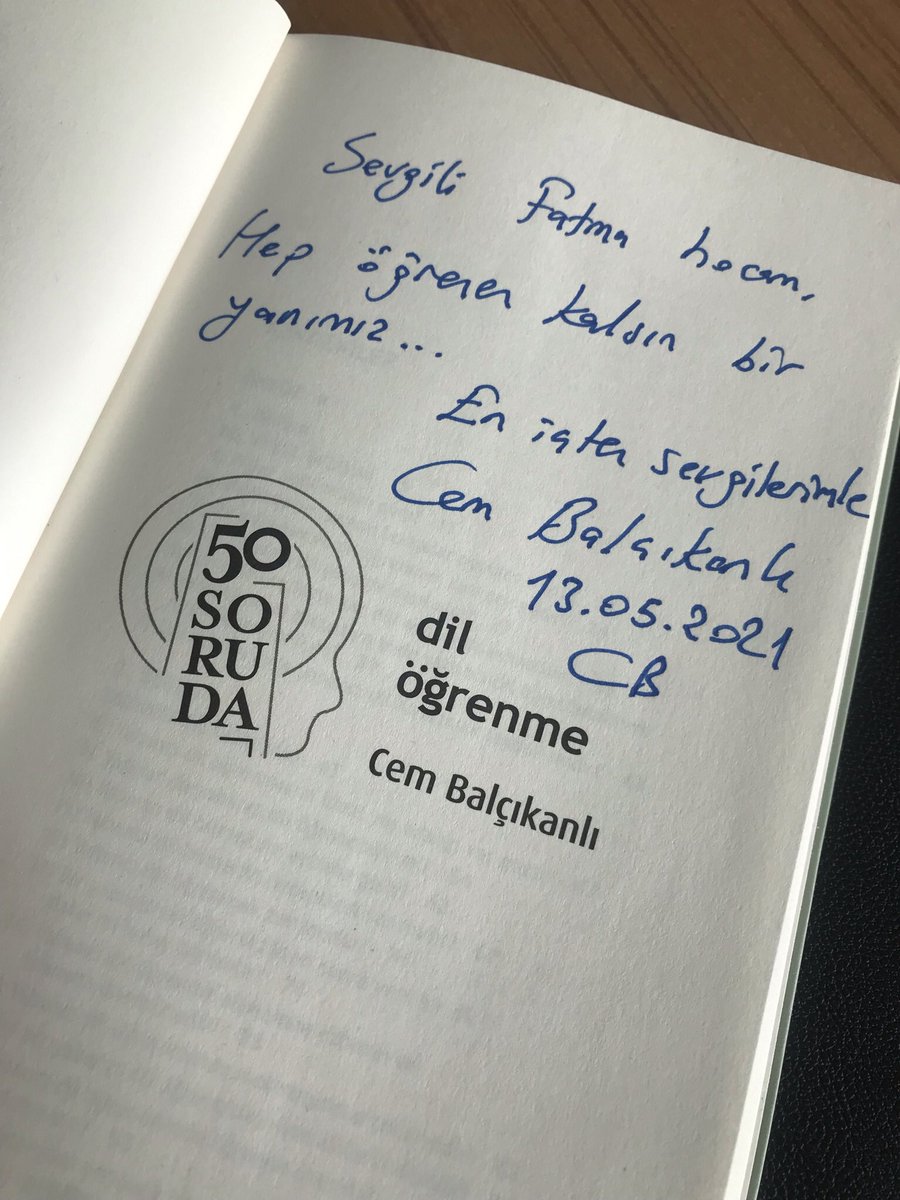 Sevgili Fatma hocam,
Hep öğrenen kalsın bir
yanımız...
En içten sevgilerimle
Cem Balçıkanlı
13.05.2021
CB
50
SO
RU
DA
dil
öğrenme
Cem Balçıkanlı